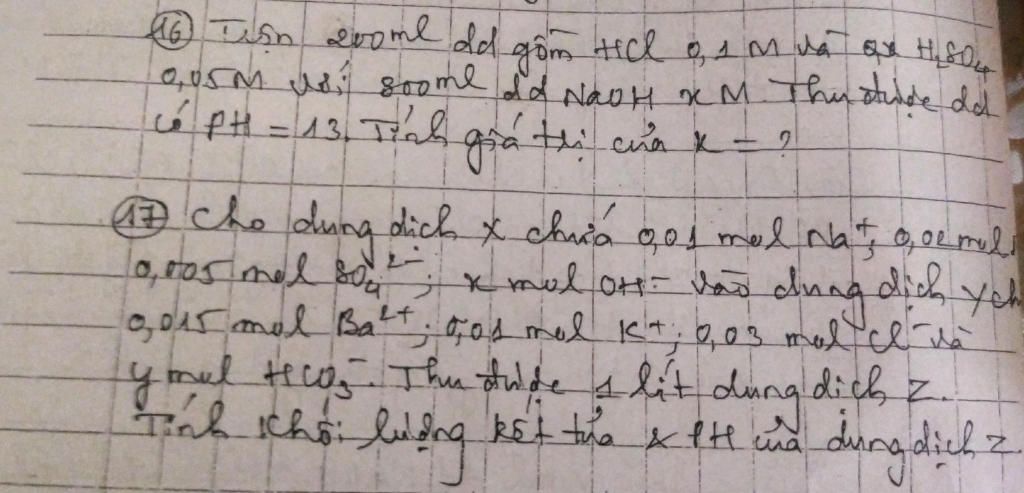 ⑯ Trộn 200ml dd gồm HCl 0,1 M và H₂SO₄
0,05M với 800ml dd NaOH x M. Thu được dd
có PH = 13. Tính giá trị của x = ?
⑰ Cho dung dịch x chứa 0,01 mol Na⁺; 0,02 mol
0,005 mol SO₄²⁻; x mol OH⁻ vào dung dịch y ch
0,015 mol Ba²⁺; 0,01 mol K⁺; 0,03 mol Cl⁻ và
y mol HCO₃⁻. Thu được 1 lít dung dịch z.
Tính khối lượng kết tủa & PH của dung dịch z